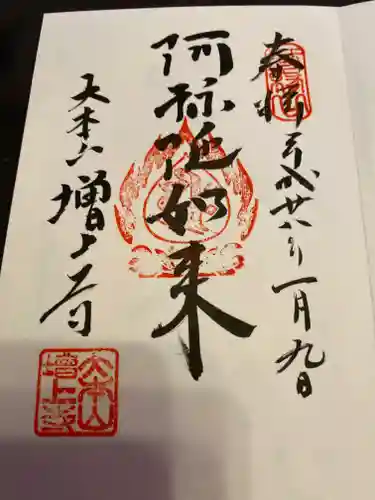 奉拝 平成廿八年一月九日
阿弥陀如来
大本山 増上寺
大本山
増上寺